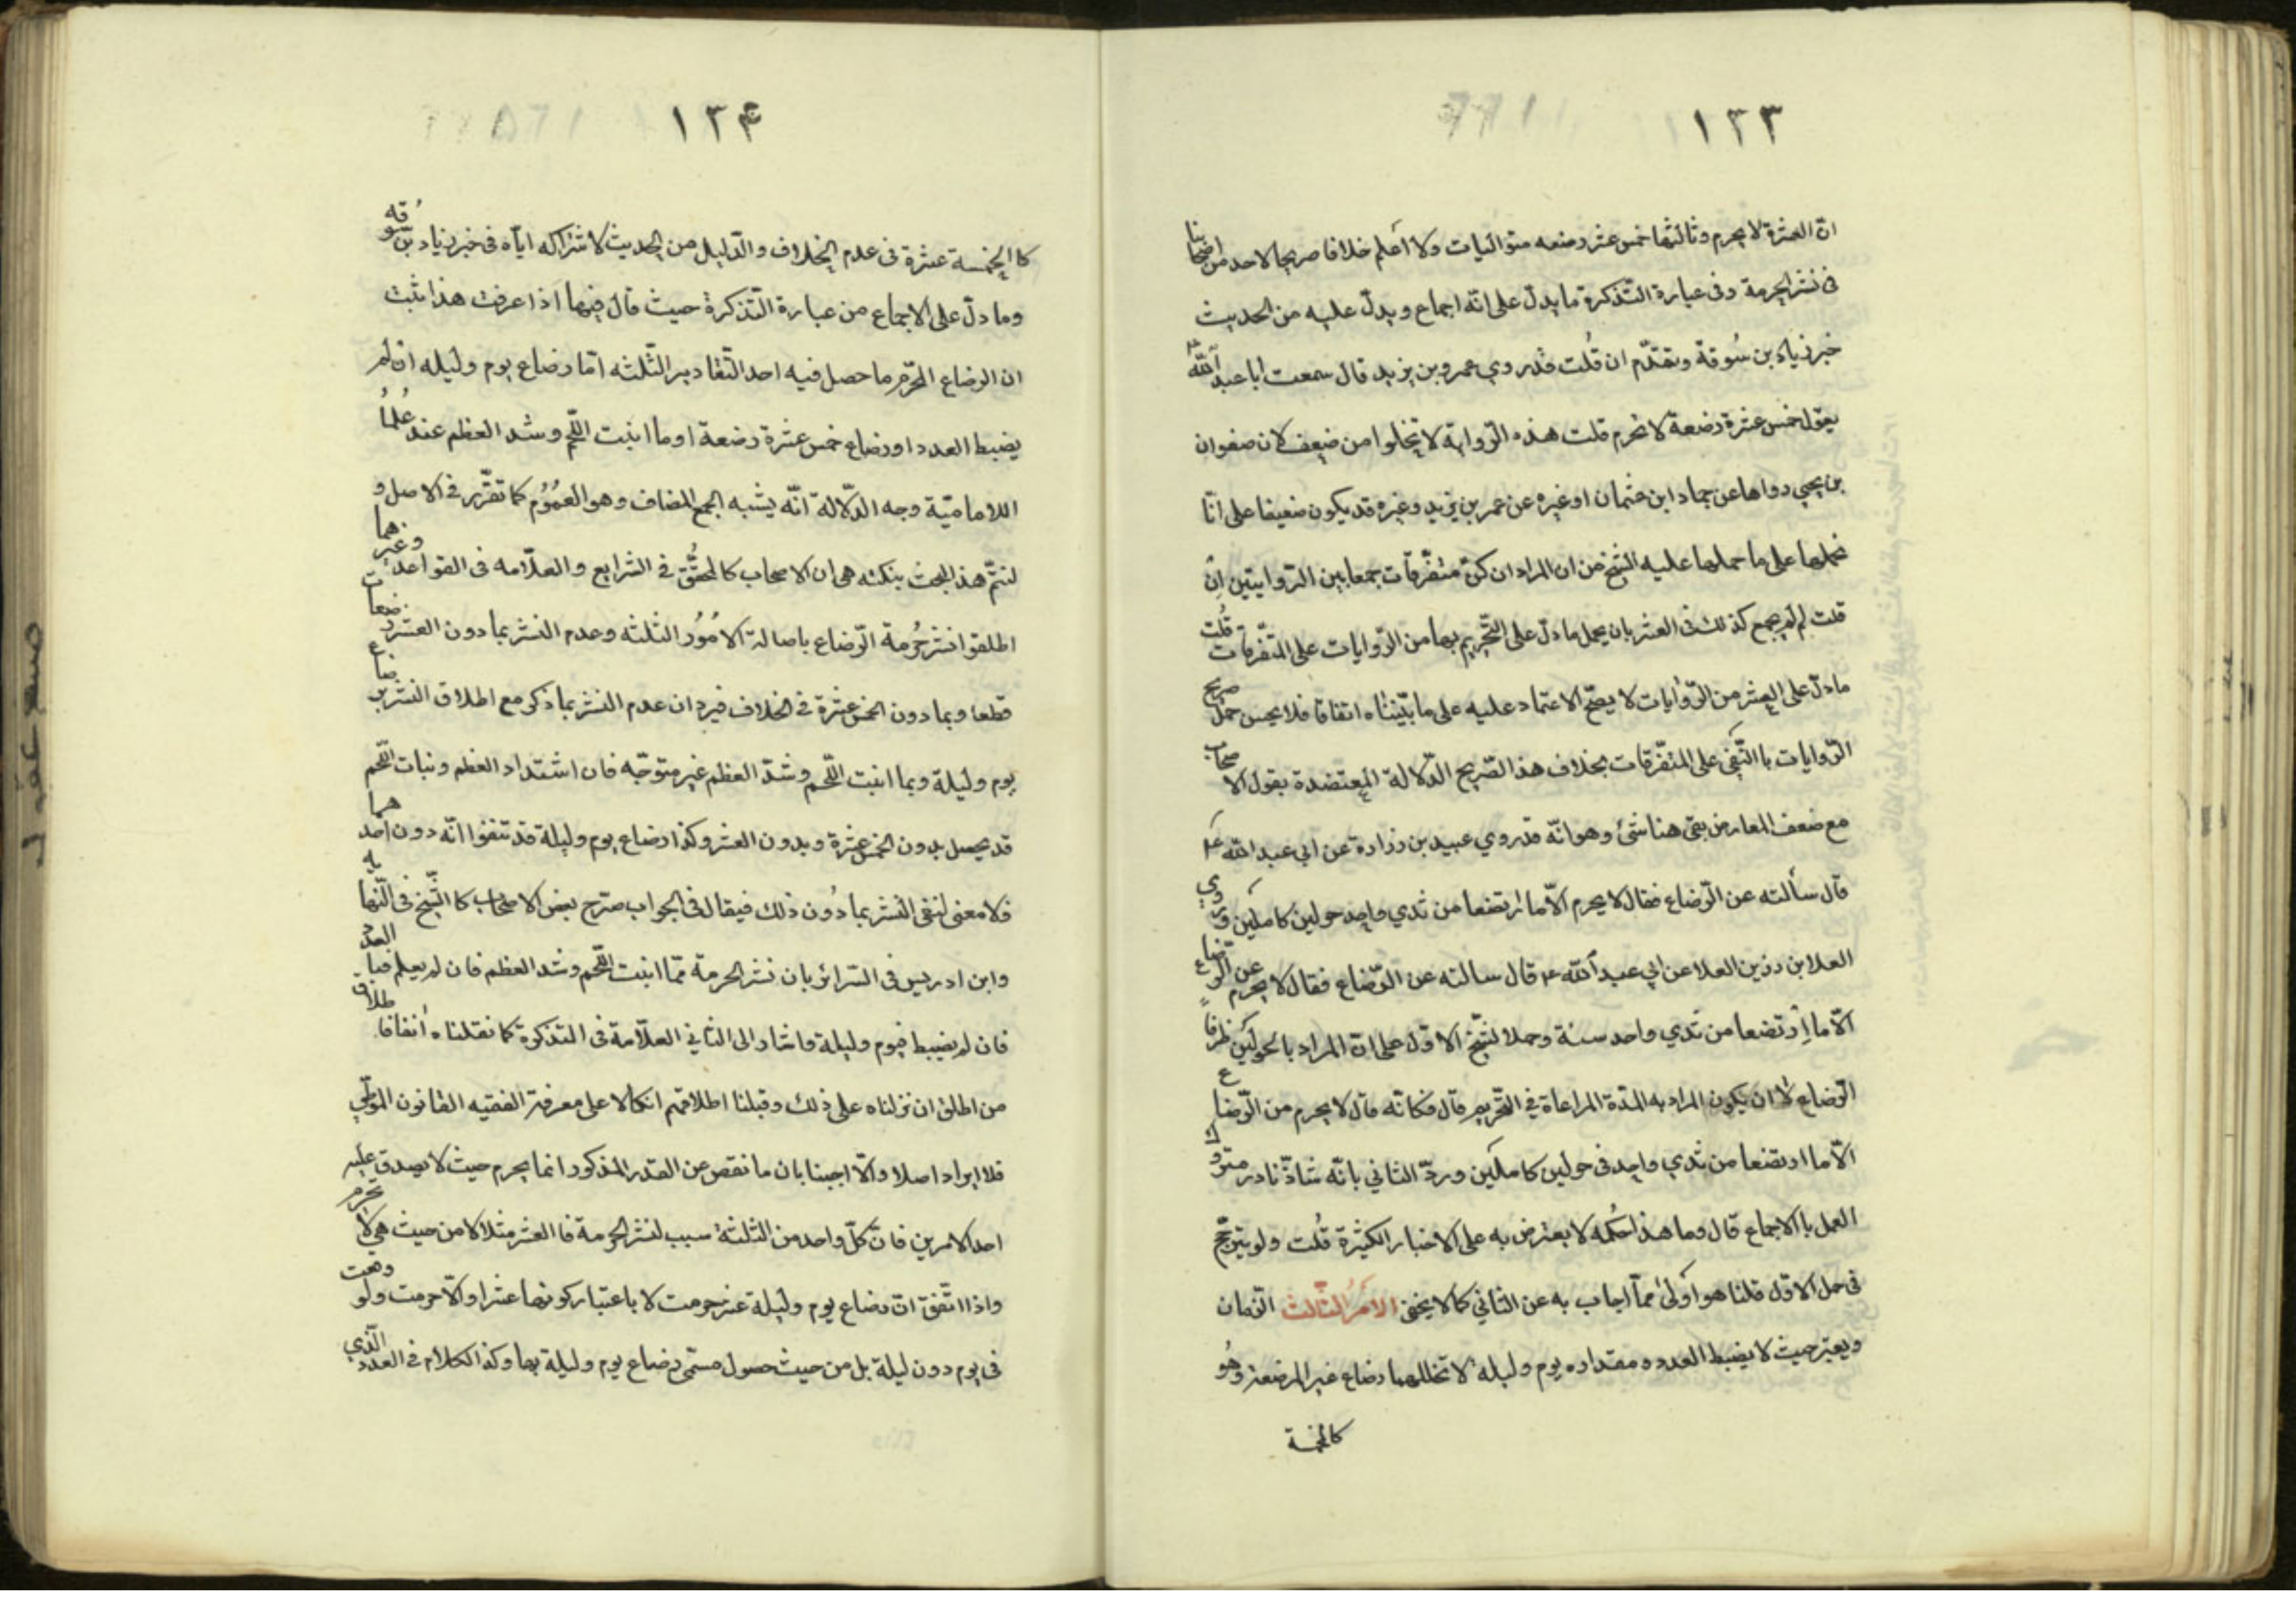 ١٣٣
ان العشرة لا يحرم وثالثها خمس عشر رضعه متواليات ولا أعلم خلافا صريحا لاحد من اصحابنا
فى نشر الحرمة وفى عبارة التذكرة ما يدل على انه اجماع ويدل عليه من الحديث
خبر زياد بن سُوقة وتقدّم ان قُلت قد روي عمرو بن يزيد قال سمعت ابا عبد الله
يقول خمس عشرة رضعة لا تحرم قلت هذه الرواية لا تخلوا من ضعف لان صفوان
بن يحيي رواها عن حماد ابن عثمان او غيره عن عمر بن يزيد وغيره قد يكون ضعيفا على انّا
نحملها على ما حملها عليه الشيخ من ان المراد ان كنّ متفرّقات جمعا بين الروايتين إن
قلت لم لم يجمع كذلك فى العشر بان يحمل ما دلّ على التّحريم بها من الرّوايات على المتفرّقات قُلت
ما دلّ على العشر من الرّوايات لا يصحّ الاعتماد عليه على ما بيّنّاه اتفاقا فلا يحسن حمل صريح
الرّوايات بالنّفى على المتفّرقات بخلاف هذا الصّريح الدّلالة المعتضدة بقول الاصحاب
مع ضعف المعارض بقى هنا شئ وهو انّه قد روي عبيد بن زرارة عن ابي عبد الله ع
قال سألته عن الرّضاع فقال لا يحرم الّا ما ارتضعا من ثدي واحد حولين كاملين وروي
العلا بن رزين العلا عن ابي عبد الله ع قال سالته عن الرّضاع فقال لا يحرم عن الرّضاع
الّا ما اِرتضعا من ثدي واحد سنة وحمل الشّيخ الاوّل على انّ المراد بالحولَين ظرفاً
الرّضاع لا ان يكون المراد به المدّة المراعاة فى التّحريم قال فكانّه قال لا يحرم من الرّضاع
الّا ما ارتضعا من ثدي واحد فى حولين كاملين وردّ الثاني بانّه شاذّ نادر متروك
العمل بالاجماع قال وما هذا حكمه لا يعترض به على الاخبار الكثيرة قُلت ولو يترجّح
فى حمل الاوّل قلنا هو أولى ممّا اجاب به عن الثاني كما لا يخفى الامرُ الثّالث الزّمان
ويعتبر حيث لا يضبط العدد ومقداره يوم وليله لا تخللهما رضاع غير المرضعة وهُو
كالخمسة
١٣۴
كا الخمسة عشرة فى عدم الخلاف والدّليل من الحديث لاشتراكه ايّاه فى خبر زياد بن سُوقه
وما دلّ على الاجماع من عبارة التّذكرة حيث قال فيها اذا عرفت هذا ثبت
ان الرضاع المحرّم ما حصل فيه احد التّقادير الثّلثه امّا رضاع يوم وليله ان لم
يضبط العدد او رضاع خمس عشرة رضعة او ما انبت اللّحم وشد العظم عند عُلماُ
اللامامّية وجه الدّلالة انّه يشبه الجمع المضاف وهو العمُوُم كما تقّرر فى الاصل و
لنتمّ هذ البحث بنكته هى ان الاصحاب كالمحقّق فى الشرايع والعلّامه فى القواعد وغيرهما
اطلقوا نشر حُرمة الرّضاع باصالة الامُورُ الثلثه وعدم النشر بما دون العشر رضعات
قطعا وبما دون الخمس عشرة فى الخلاف فيرد ان عدم النشر بما ذكر مع اطلاق النشر برضاع
يوم وليلة وبما انبت اللّحم وشدّ العظم غير متوجّه فان اشتداد العظم ونبات اللّحم
قد يحصل بدون الخمس عشرة وبدون العشر وكذا رضاع يوم وليلة قد تتفوا انّه دون احدهما
فلا معنى لنفى النشر بما دُون ذلك فيقال فى الجواب صّرح بعض الاصحاب كا الشّيخ فى النّهايه
وابن ادريس فى السّرائر بان نشر الحرمة ممّا انبت اللّحم وشد العظم فان لم يعلم فبا العدد
فان لم يضبط فيوم وليلة واشار الى الثاني العلّامة فى التذكرة كما نقلناه أنفا فاطلاق
من اطلق ان نزلناه على ذلك وقبلنا اطلاقهم اتكالا على معرفة الفقيه القانون
فلا ايراد اصلا والّا اجبنا بان ما نقص عن القدر المذكور انما يحرم حيث لا يصدق عليه
احد الامرين فانّ كلّ واحد من الثلثة سبب لنشر الحرمة فا العشر مثلا لا من حيث هي لا تحرم
واذا اتّفق انّ رضاع يوم وليلة عشر حرمت لا باعتبار كونها عشرا والّا حرمت ولو وقعت
فى يوم دون ليلة بل من حيث حصول مسمّى رضاع يوم وليلة بها وكذ الكلام فى العدد الّذي